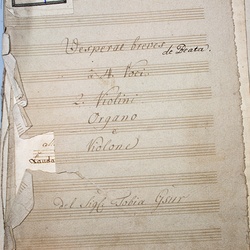 Vesperae breves de Beata.
à 4. Voci.
2. Violini
Organo
e
Violone
Lauda
Del Sigl: Tobia Gsur